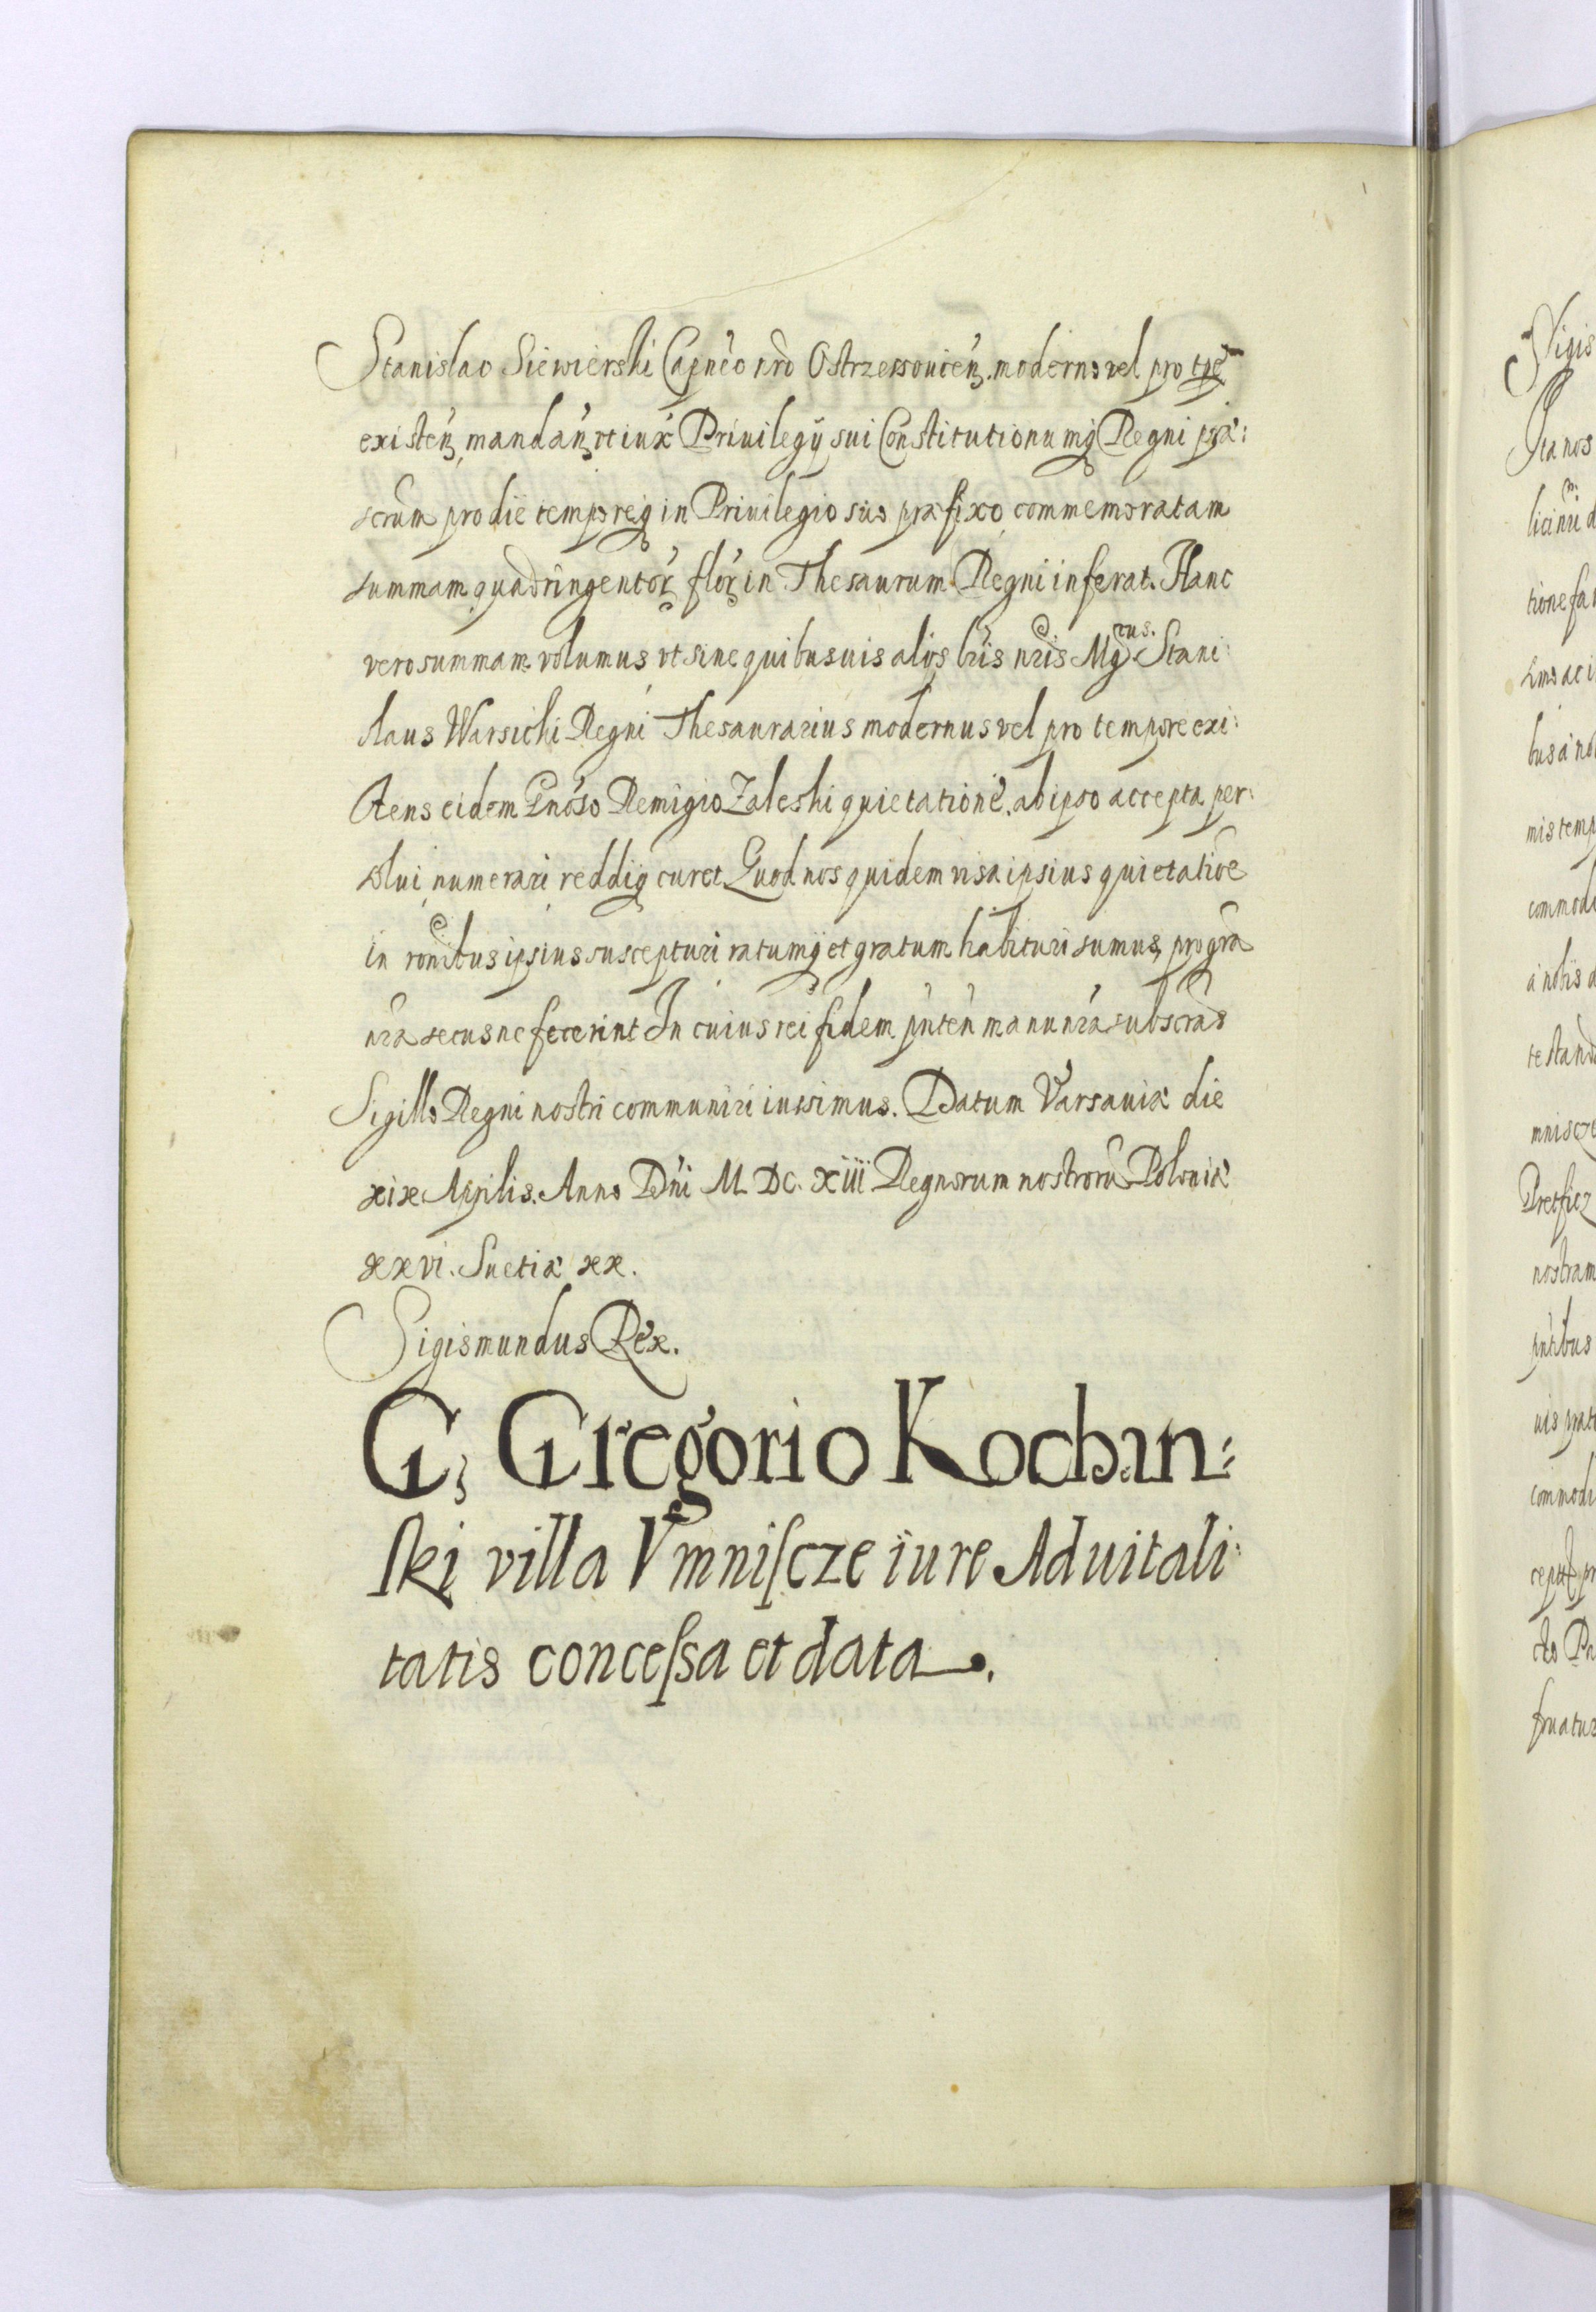 Stanislao Siewierski Capnĕo nrō Ostrzessouicen̄. moderno vel pro tp̄e
existen̄, mandan̄ vt iux̄ Priuilegÿ sui Constitutionumq̨ Regni præ:
scrūm pro die temporeq̨ in Priuilegio suo præfixo commemoratam
summam quadringentor̄ flor̄ in Thesaurum Regni inferat. Hanc
vero summam volumus vt sine quibusuis alÿs lr̄is nr̄is Mg̃cus. Stani:
slaus Warsichi Regni Thesaurarius modernus vel pro tempore exi:
stens eidem Gnōso Remigio Zaleski quietatione ab ipso accepta per:
solui, numerari reddiq̨ curet Quod nos quidem visa ipsius quietatiōe
in ronībus ipsius suscepturi ratumq̨ et gratum habituri sumus, pro grā
nrā secus ne fecerint In cuius rei fidem pn̄ten̄ manu nrā subscrās
Sigillo Regni nostri communiri iussimus. Datum Varsauiæ die
xix Aprilis. Anno Dn̄i M. DC. XIII Regnorum nostrorū Poloniæ
xxvi. Suetiæ xx.
Sigismundus Rex.
G, Gregorio Kochan:
ſki villa Vmniſcze iure Aduitali:
tatis conceſsa et data.
Sigis
Ita nos
tione fa
bus à no
mis temp
commodo
à nobis a
te stand
mniscze
Pretficz
nostram
pn̄tibus
commodi
fruatur